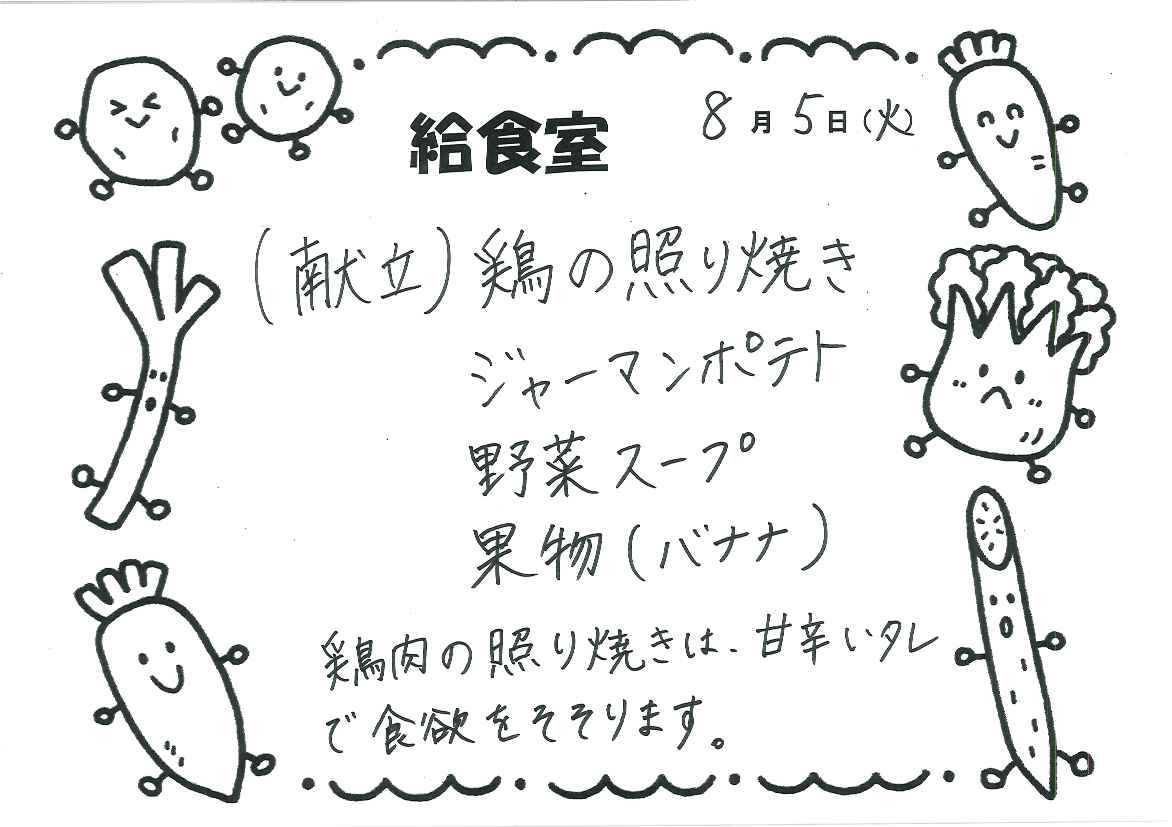 給食室
8月5日(火)
(献立)鶏の照り焼き
ジャーマンポテト
野菜スープ
果物(バナナ)
鶏肉の照り焼きは、甘辛いタレ
で食欲をそそります。